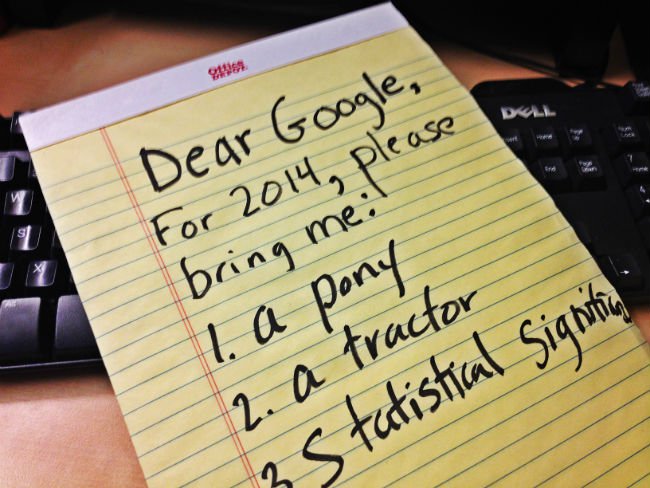 Office
DEPOT
Dear Google,
For 2014, please
bring me:
1. a pony
2. a tractor
3 Statistical
DELL
Home
Page Up
Num Lock
End
Page Down
7
Home
4
W
S
X